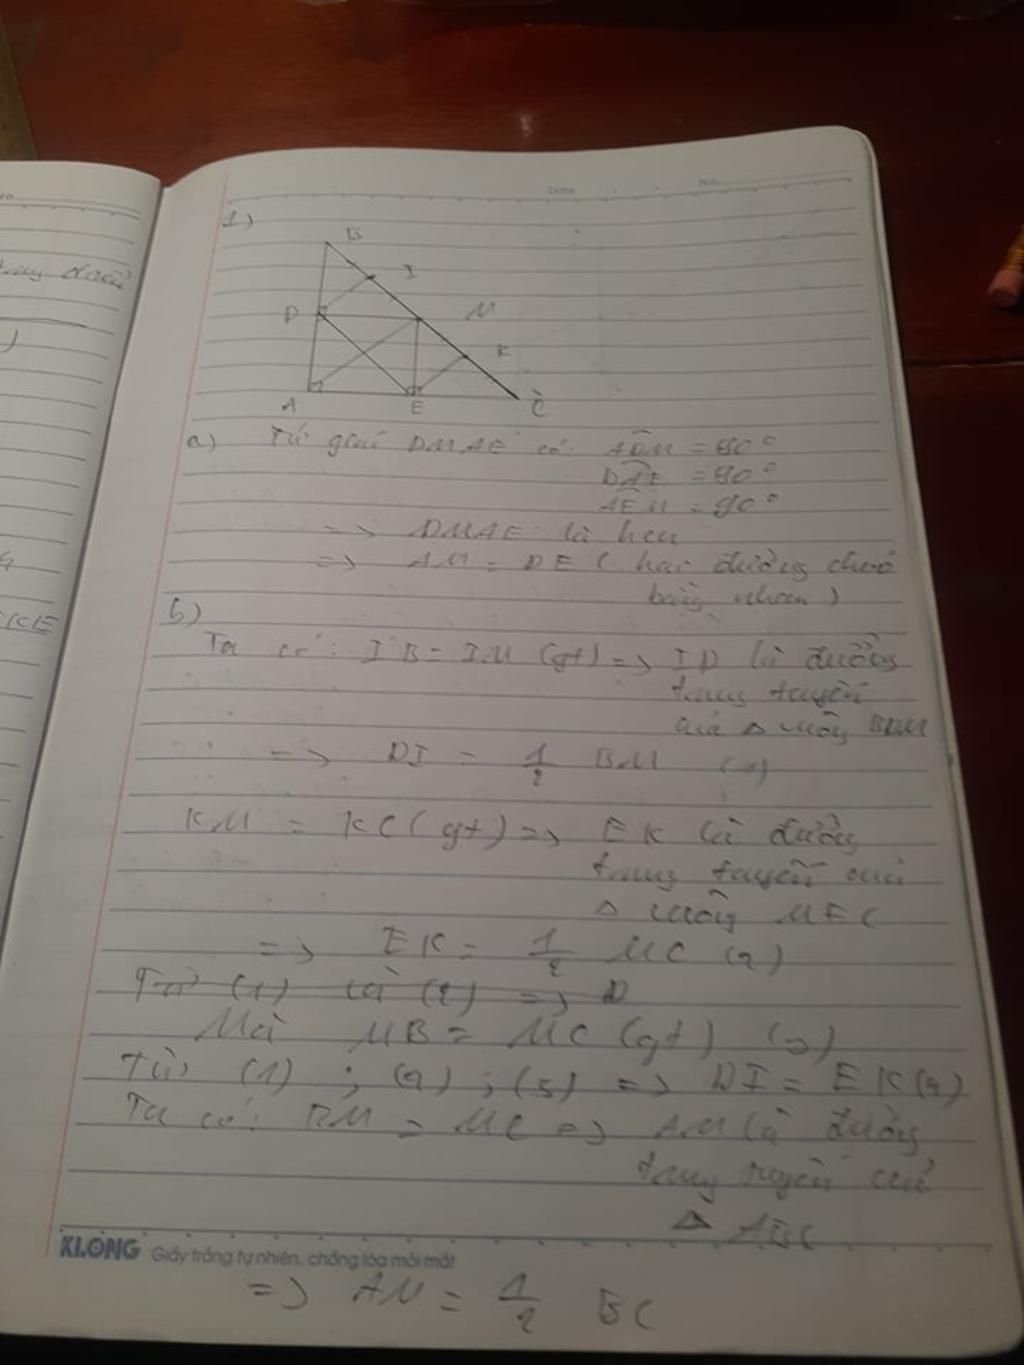 Date No
1)
B
I
D
M
K
A E C
a) Tứ giác DMAE có: ADM = 90°
DAE = 90°
AEM = 90°
=> DMAE là hcn
=> AM = DE ( hai đường chéo
bằng nhau )
b)
Ta có: IB = IM (gt) => ID là đường
trung tuyến
của Δ vuông BDM
=> DI = 1/2 BM (1)
KM = KC (gt) => EK là đường
trung tuyến của
Δ vuông MEC
=> EK = 1/2 MC (2)
Từ (1) và (2) => D
Mà MB = MC (gt) (3)
Từ (1) ; (2) ; (3) => DI = EK (4)
Ta có: BM = MC => AM là đường
trung tuyến của
Δ ABC
KLONG Giấy trắng tự nhiên, chống lóa mỏi mắt
=> AM = 1/2 BC
KE